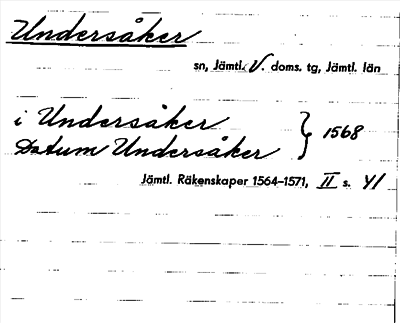 Undersåker
sn, Jämtl. V. doms. tg, Jämtl. län
i Undersåker } 1568
Datum Undersåker
Jämtl. Räkenskaper 1564–1571, II s. 41